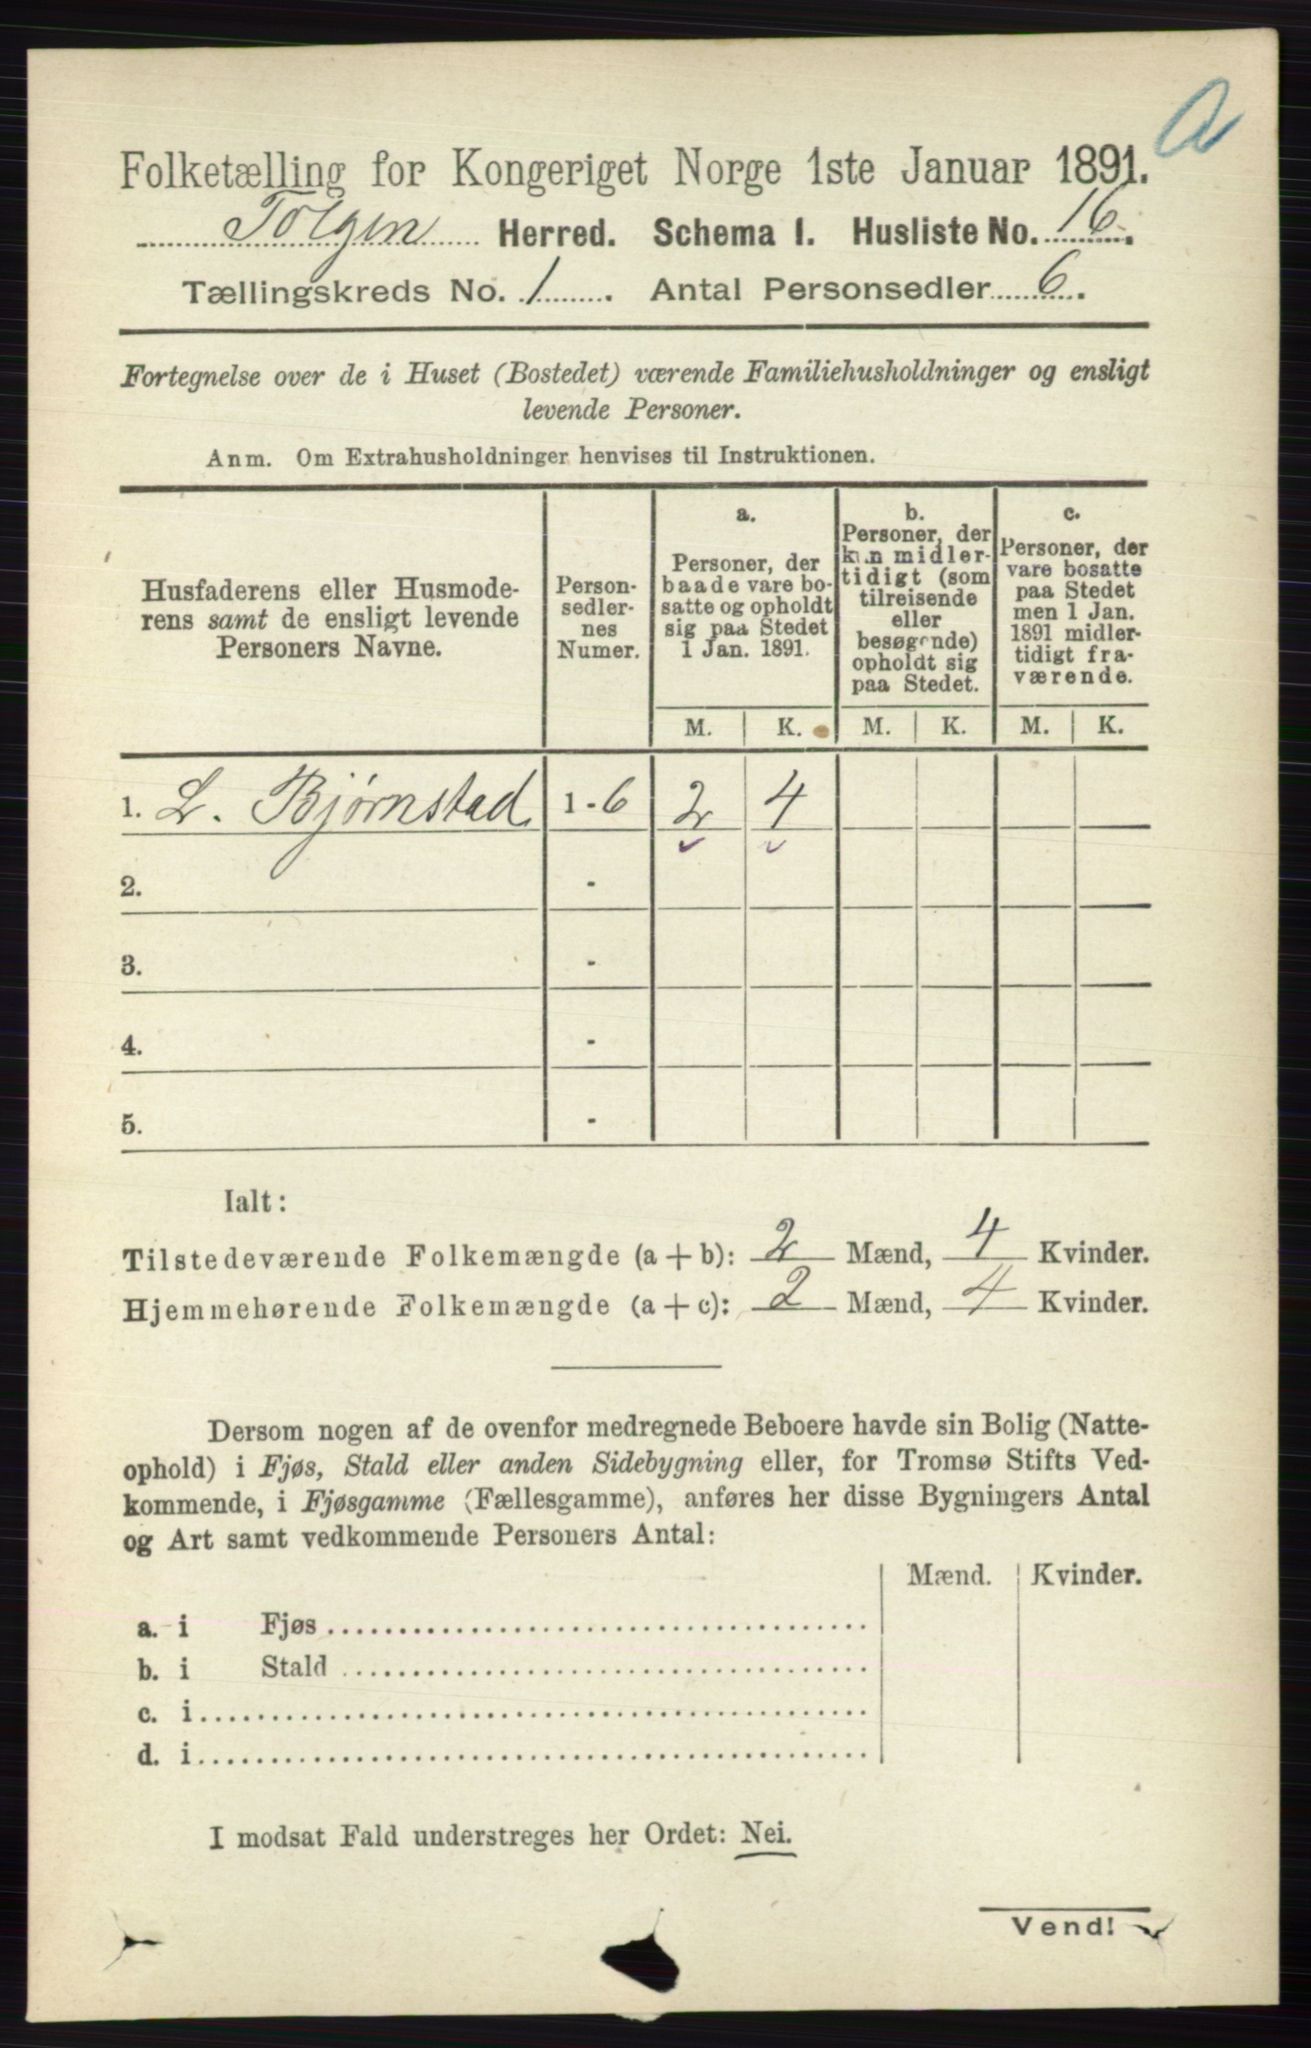 a
Folketælling for Kongeriget Norge 1ste Januar 1891.
Tolgen Herred. Schema I. Husliste No. 16.
Tællingskreds No. 1. Antal Personsedler 6.
Fortegnelse over de i Huset (Bostedet) værende Familiehusholdninger og ensligt
levende Personer.
Anm. Om Extrahusholdninger henvises til Instruktionen.
Husfaderens eller Husmode-
rens samt de ensligt levende
Personers Navne.
Person-
sedler-
nes
Numer.
a.
Personer, der
baade vare bo-
satte og opholdt
sig paa Stedet
1 Jan. 1891.
b.
Personer, der
kun midler-
tidigt (som
tilreisende
eller
besøgende)
opholdt sig
paa Stedet.
c.
Personer, der
vare bosatte
paa Stedet
men 1 Jan.
1891 midler-
tidigt fra-
værende.
M. K. M. K. M. K.
1. L. Bjørnstad 1-6 2 4
2. -
3. -
4. -
5. -
Ialt:
Tilstedeværende Folkemængde (a + b): 2 Mænd, 4 Kvinder.
Hjemmehørende Folkemængde (a + c): 2 Mænd, 4 Kvinder.
Dersom nogen af de ovenfor medregnede Beboere havde sin Bolig (Natte-
ophold) i Fjøs, Stald eller anden Sidebygning eller, for Tromsø Stifts Ved-
kommende, i Fjøsgamme (Fællesgamme), anføres her disse Bygningers Antal
og Art samt vedkommende Personers Antal:
Mænd. Kvinder.
a. i Fjøs
b. i Stald
c. i
d. i
I modsat Fald understreges her Ordet: Nei.
Vend!